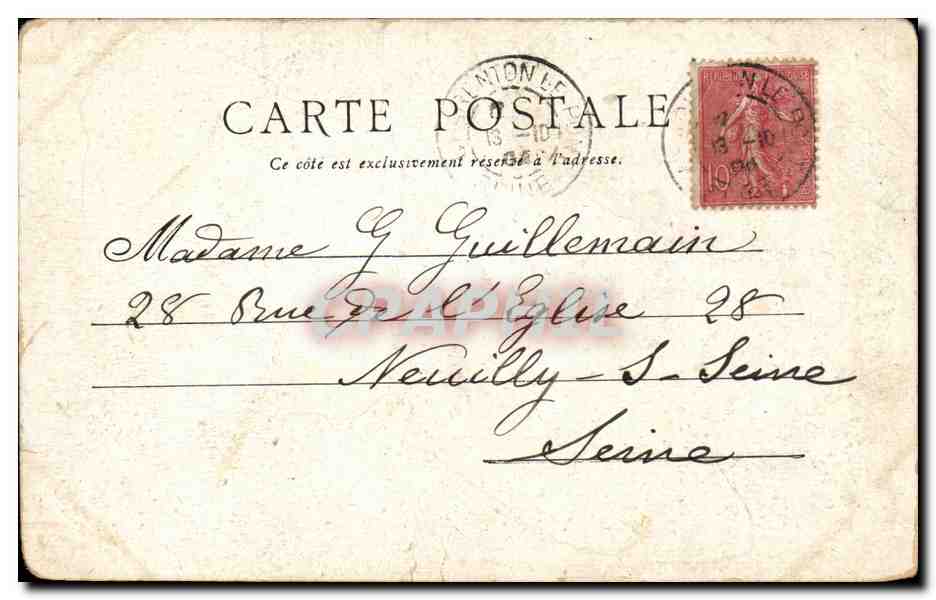 CARTE POSTALE
Ce côté est exclusivement réservé à l'adresse.
NTON LE
13 -10
10
Madame G Guillemain
28 Rue de l'Eglise 28
Neuilly-S-Seine
Seine
CPAPHIL